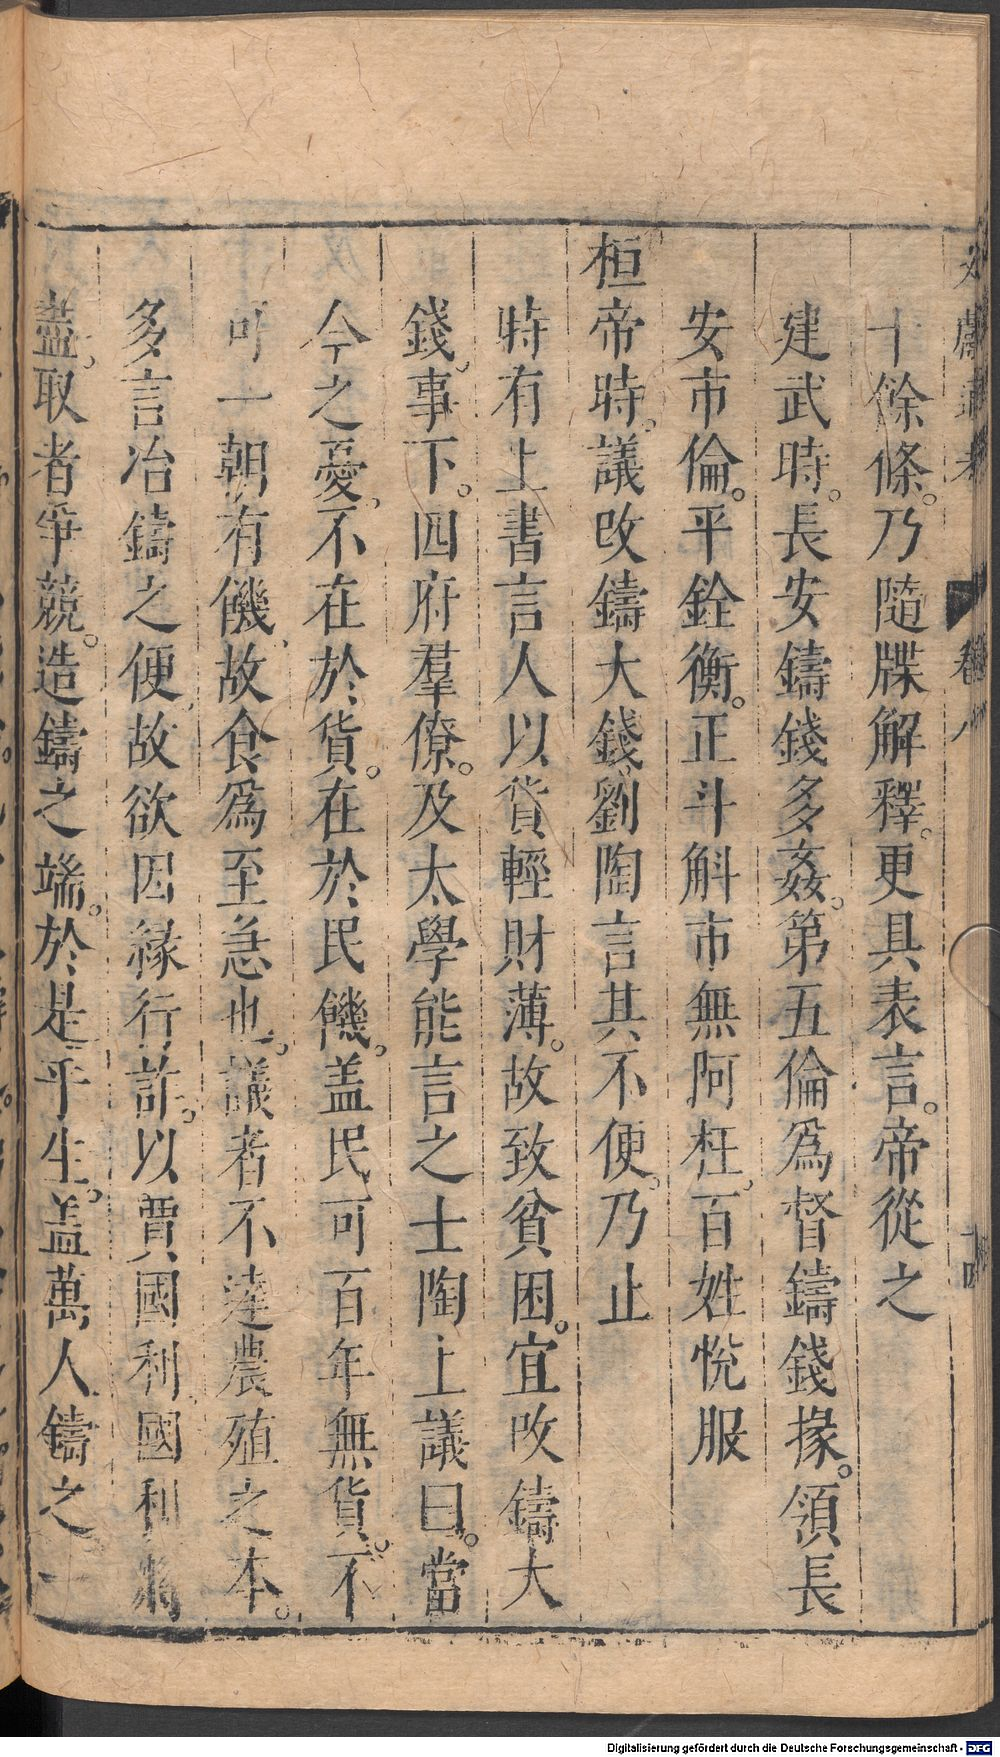 文獻通考 卷八
十餘條。乃隨牒解釋。更具表言。帝從之
建武時。長安鑄錢多姦。第五倫爲督鑄錢掾。領長
安市倫。平銓衡。正斗斛市無阿枉。百姓悅服
桓帝時。議改鑄大錢。劉陶言其不便。乃止
時有上書言人以貨輕財薄。故致貧困。宜改鑄大
錢。事下。四府羣僚。及太學能言之士陶上議曰。當
今之憂。不在於貨。在於民饑。盖民可百年無貨。不
可一朝有饑。故食爲至急也。議者不達農殖之本。
多言冶鑄之便。故欲因緣行詐。以賈國利國利將
盡。取者爭競。造鑄之端。於是乎生。盖萬人鑄之一
Digitalisierung gefördert durch die Deutsche Forschungsgemeinschaft - DFG